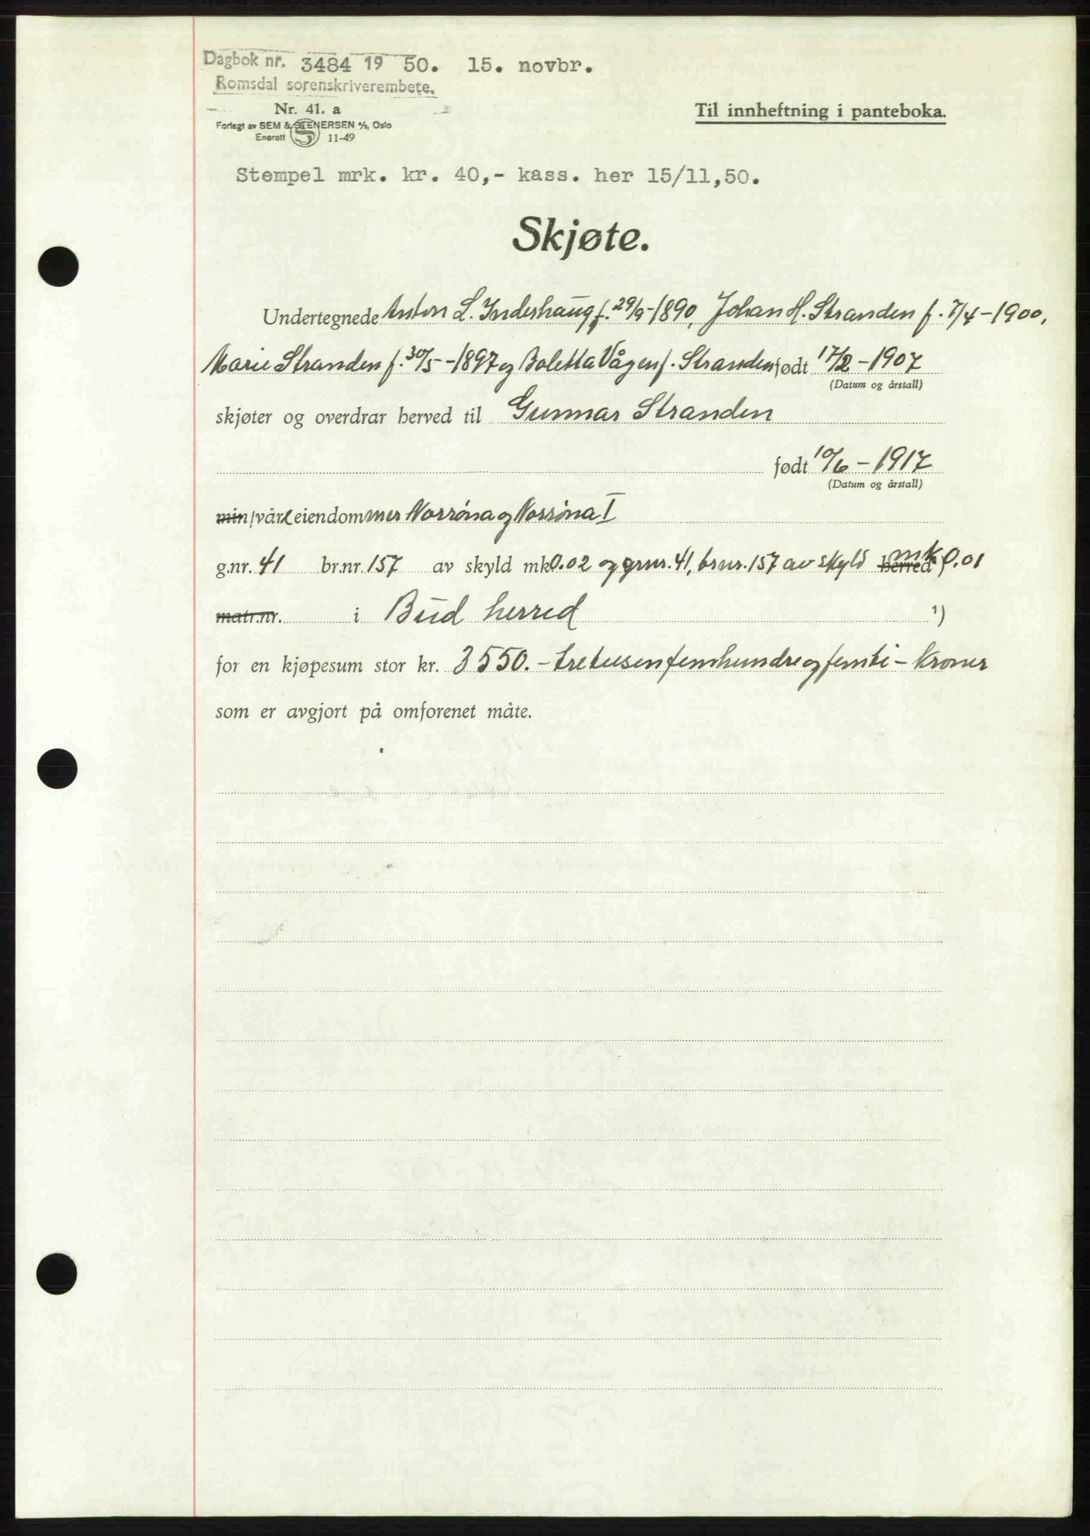 Dagbok nr. 3484 19 50. 15. novbr.
Romsdal sorenskriverembete.
Nr. 41. a
Til innheftning i panteboka.
Forlegt av SEM & STENERSEN A/S, Oslo
Enerett 11-49
Stempel mrk. kr. 40,- kass. her 15/11,50.
Skjøte.
Undertegnede Anton L. Inderhaug f. 29/9-1890, Johan H. Stranden f. 7/4-1900,
Marie Stranden f. 30/5-1897 og Boletta Vågen f. Stranden født 17/2-1907
(Datum og årstall)
skjøter og overdrar herved til Gunnar Stranden
født 10/6-1917
(Datum og årstall)
min/våre eiendommer Norrøna og Norrøna I
g.nr. 41 br.nr. 157 av skyld mk 0.02 og grnr. 41, brnr. 157 av skyld herred mk 0.01
matr.nr. i Bud herred ¹)
for en kjøpesum stor kr. 3550.- tretusenfemhundreogfemti- kroner
som er avgjort på omforenet måte.